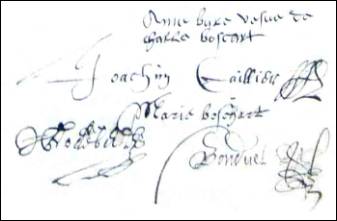 Anne byre vesve de
charle boscart
Joachin Caillier
Marie boschart
Bonduel